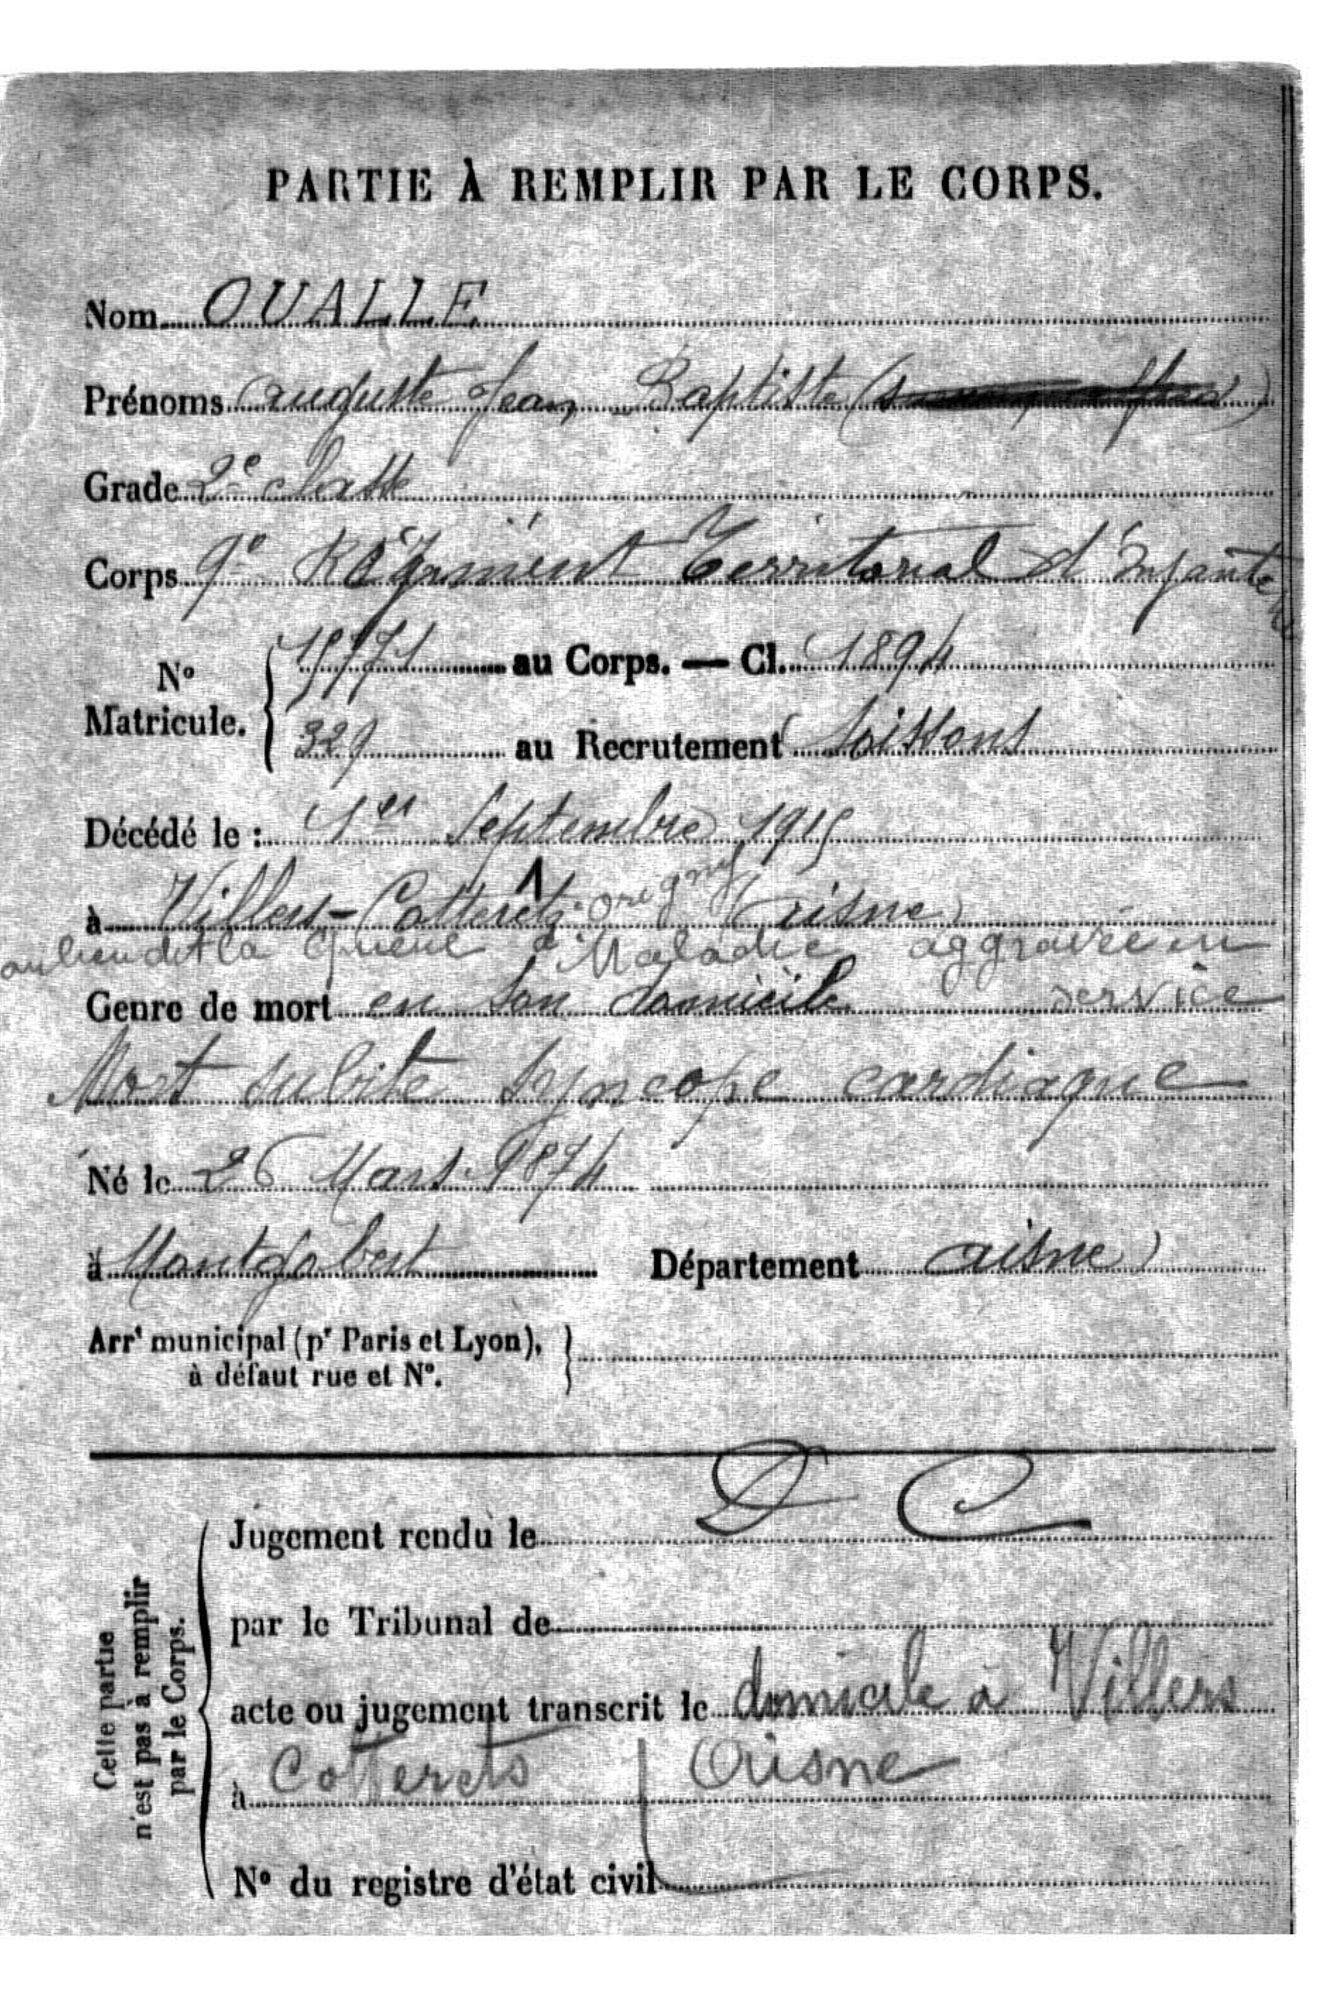 PARTIE À REMPLIR PAR LE CORPS.
Nom OUALLE
Prénoms Auguste Jean Baptiste
Grade 2e classe
Corps 9e Régiment Territorial d'Infanterie
No Matricule. 1571 au Corps. — Cl. 1894
329 au Recrutement Soissons
Décédé le : 1er Septembre 1915
à Villers-Cotterets Aisne
au lieu dit la queue d' Maladie aggravée en
Genre de mort en son domicile service
Mort subite syncope cardiaque
Né le 26 Mars 1874
à Montgobert Département Aisne
Arrt municipal (pr Paris et Lyon),
à défaut rue et No.
D C
Jugement rendu le
par le Tribunal de
acte ou jugement transcrit le domicile à Villers
à Cotterets Aisne
No du registre d'état civil
Cette partie
n'est pas à remplir
par le Corps.